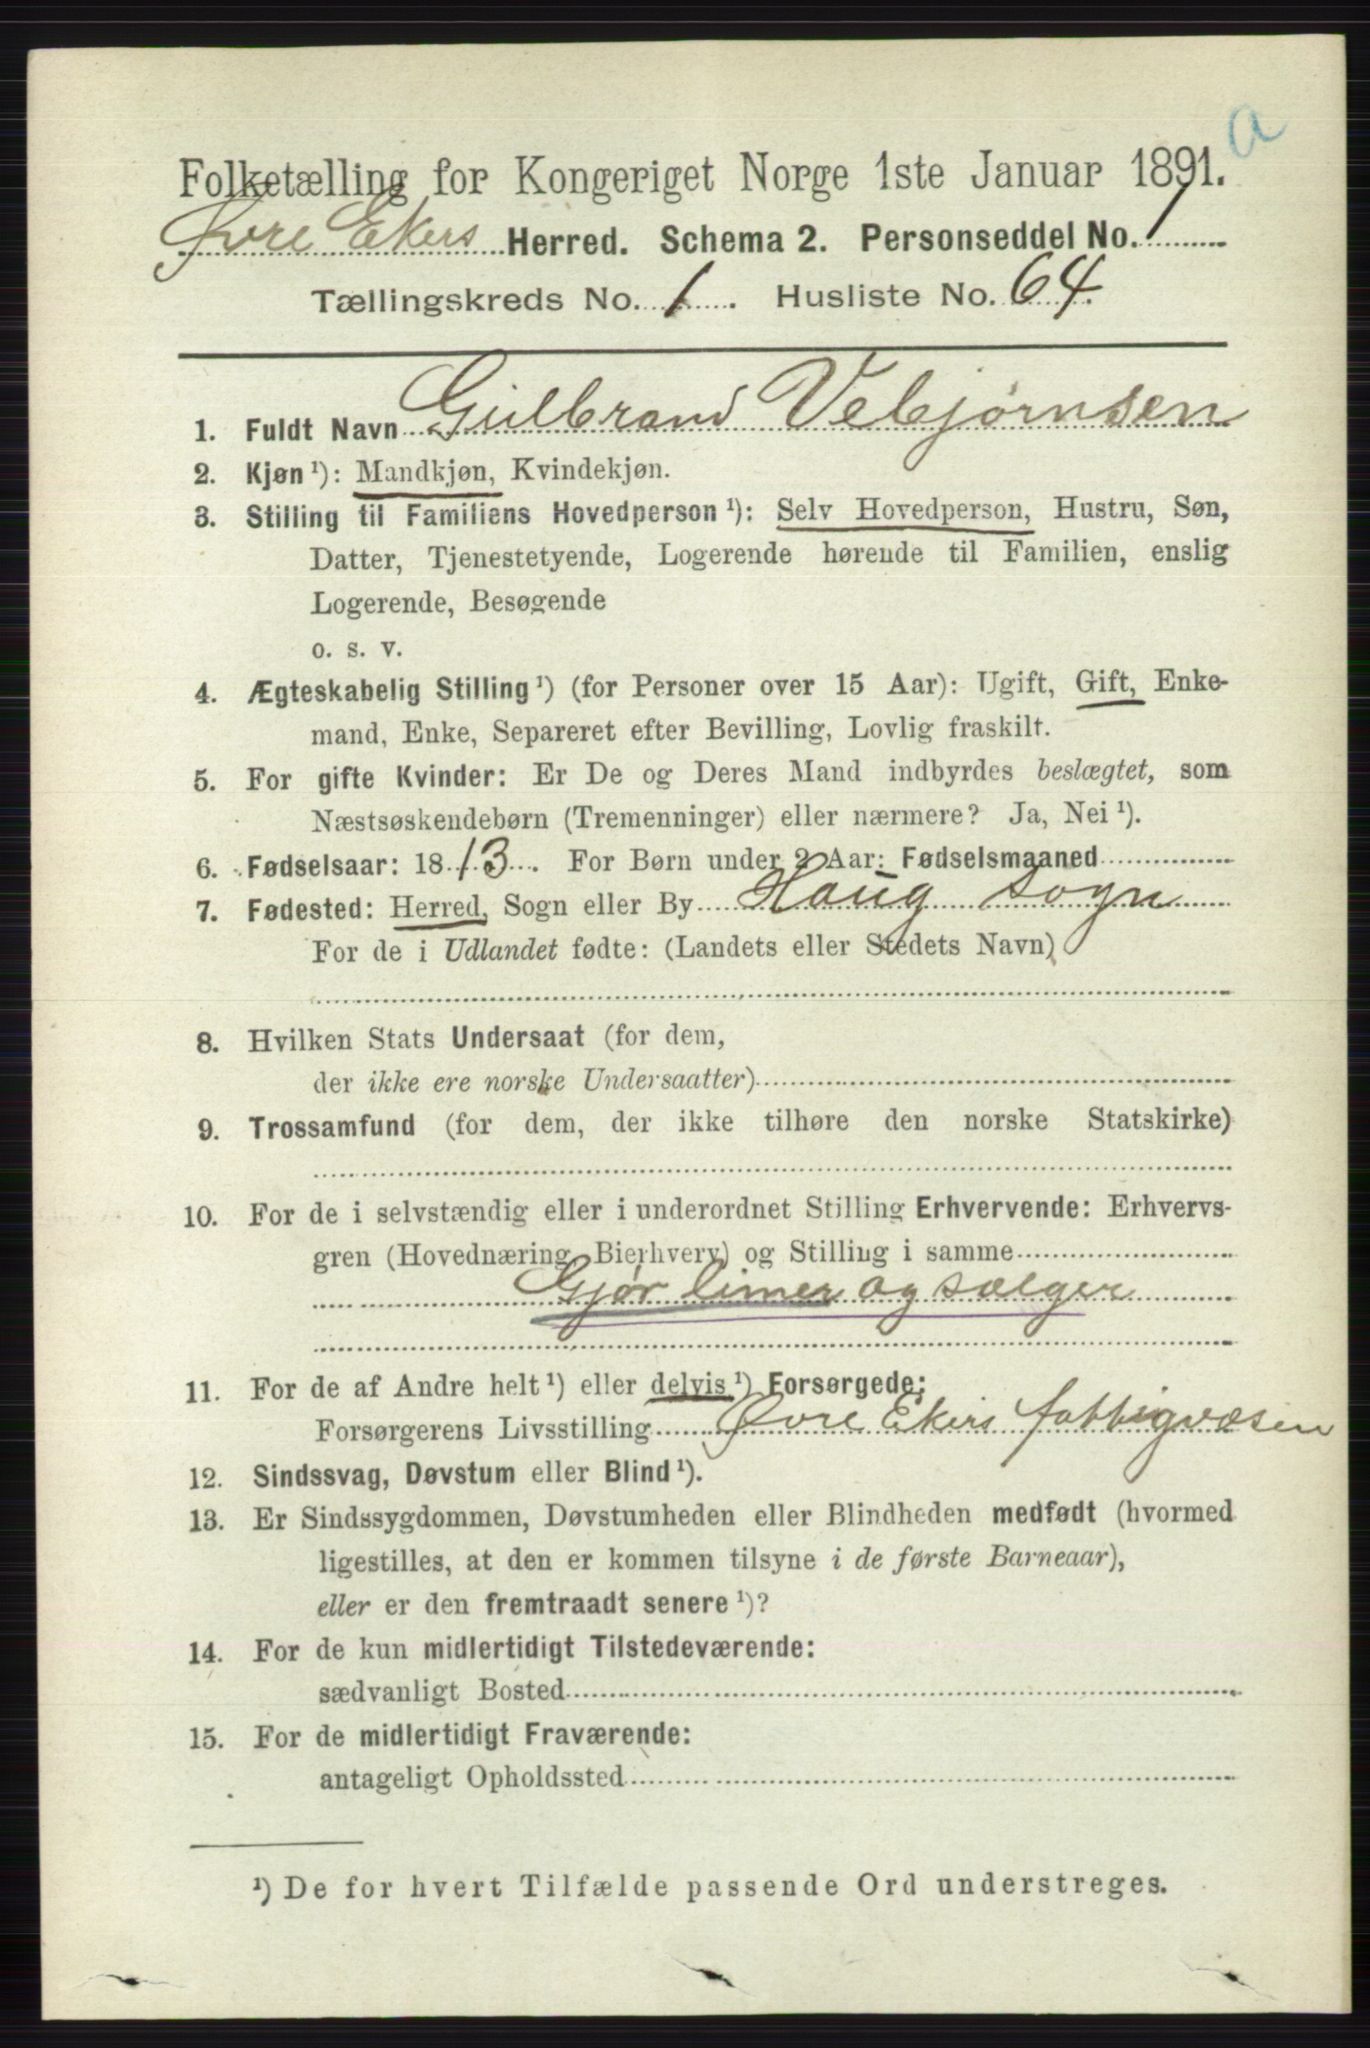 a
Folketælling for Kongeriget Norge 1ste Januar 1891.
Øvre Ekers Herred. Schema 2. Personseddel No. 1
Tællingskreds No. 1. Husliste No. 64.
1. Fuldt Navn Gulbrand Vebjørnsen
2. Kjøn ¹): Mandkjøn, Kvindekjøn.
3. Stilling til Familiens Hovedperson ¹): Selv Hovedperson, Hustru, Søn,
Datter, Tjenestetyende, Logerende hørende til Familien, enslig
Logerende, Besøgende
o. s. v.
4. Ægteskabelig Stilling ¹) (for Personer over 15 Aar): Ugift, Gift, Enke-
mand, Enke, Separeret efter Bevilling, Lovlig fraskilt.
5. For gifte Kvinder: Er De og Deres Mand indbyrdes beslægtet, som
Næstsøskendebørn (Tremenninger) eller nærmere? Ja, Nei ¹).
6. Fødselsaar: 1813. For Børn under 2 Aar: Fødselsmaaned
7. Fødested: Herred, Sogn eller By Haug sogn
For de i Udlandet fødte: (Landets eller Stedets Navn)
8. Hvilken Stats Undersaat (for dem,
der ikke ere norske Undersaatter)
9. Trossamfund (for dem, der ikke tilhøre den norske Statskirke)
10. For de i selvstændig eller i underordnet Stilling Erhvervende: Erhvervs-
gren (Hovednæring, Bierhverv) og Stilling i samme
Gjør limer og sælger
11. For de af Andre helt ¹) eller delvis ¹) Forsørgede:
Forsørgerens Livsstilling Øvre Ekers fattigvæsen
12. Sindssvag, Døvstum eller Blind ¹).
13. Er Sindssygdommen, Døvstumheden eller Blindheden medfødt (hvormed
ligestilles, at den er kommen tilsyne i de første Barneaar),
eller er den fremtraadt senere ¹)?
14. For de kun midlertidigt Tilstedeværende:
sædvanligt Bosted
15. For de midlertidigt Fraværende:
antageligt Opholdssted
¹) De for hvert Tilfælde passende Ord understreges.